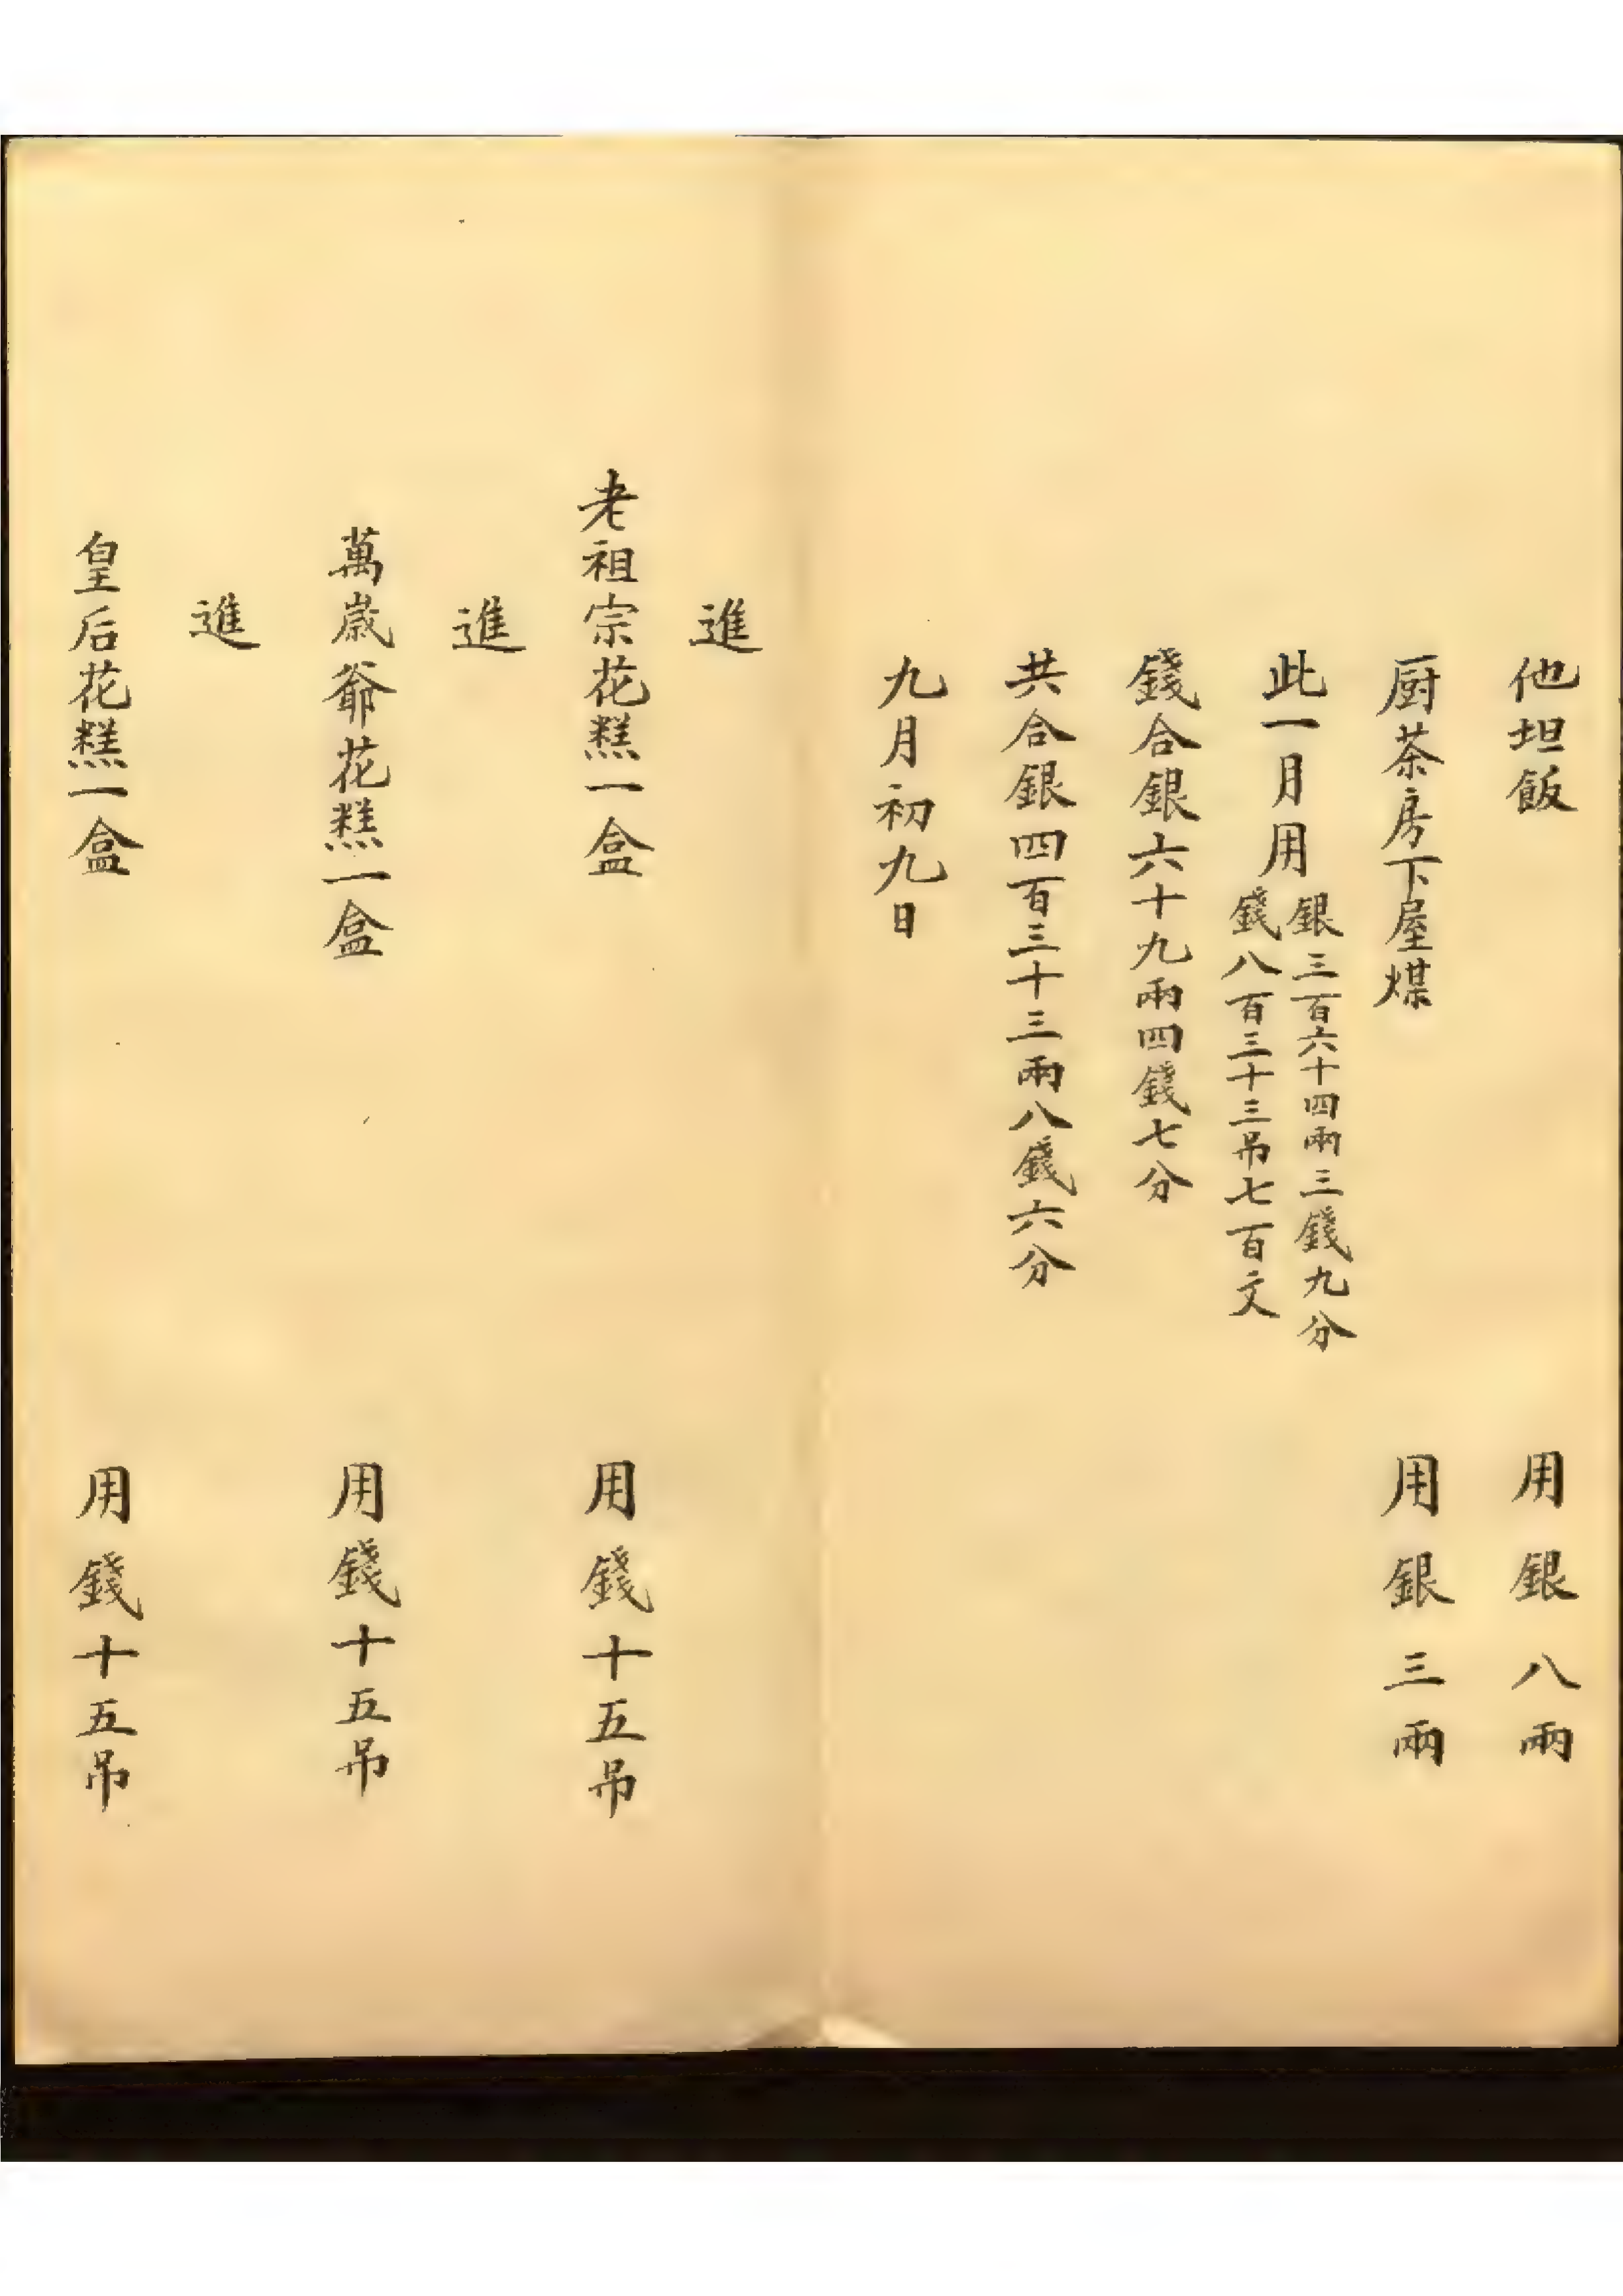 他坦飯　用銀八兩
厨茶房下屋煤　用銀三兩
此一月用
銀三百六十四兩三錢九分
錢八百三十三吊七百文
錢合銀六十九兩四錢七分
共合銀四百三十三兩八錢六分
九月初九日
進
老祖宗花糕一盒　用錢十五吊
進
萬歲爺花糕一盒　用錢十五吊
進
皇后花糕一盒　用錢十五吊